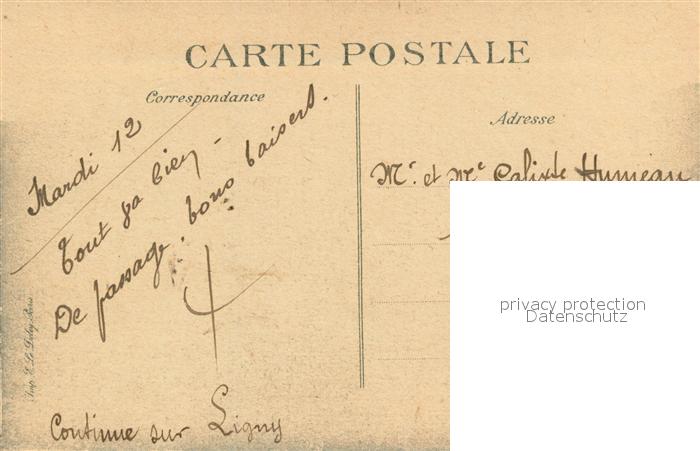 CARTE POSTALE
Correspondance
Adresse
Mardi 12
Tout va bien -
De passage. bons baisers.
Continue sur Ligny
Mr. et Me Calixte Humeau
Imp. E. Le Deley, Paris
privacy protection
Datenschutz